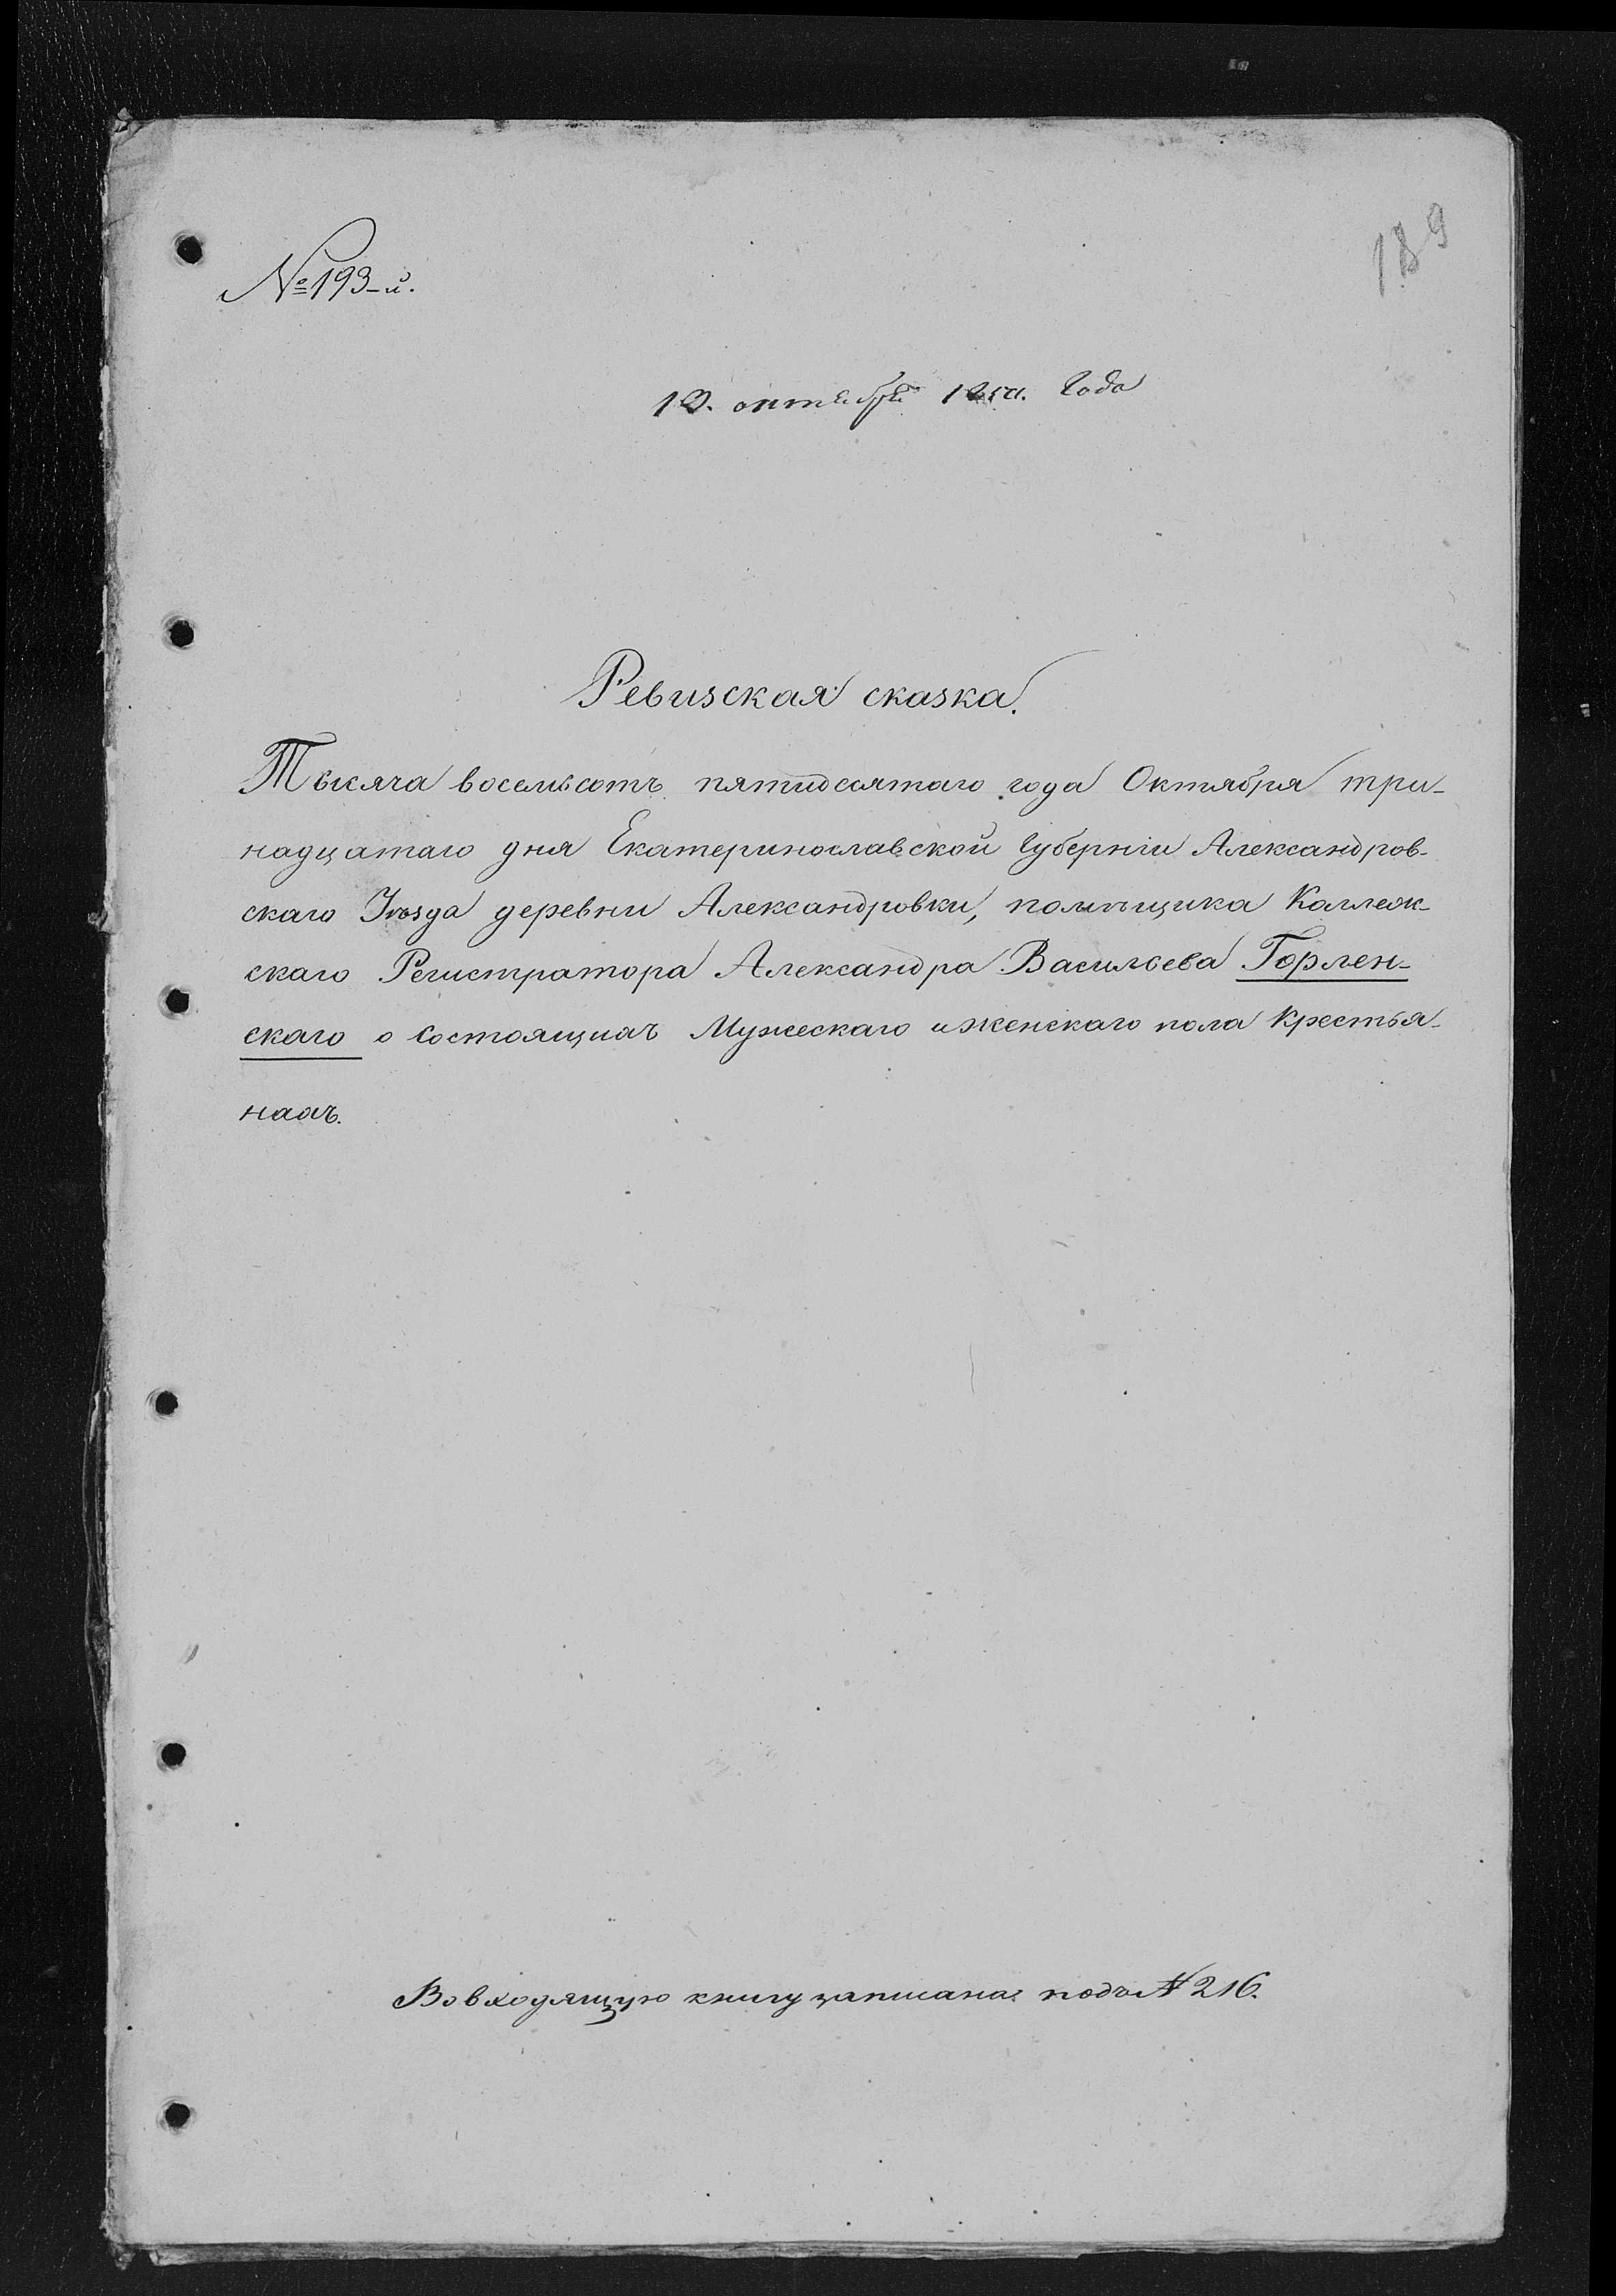 №193-й.
189
13. октября 1850. Года
Ревизская сказка.
Тысяча восемьсотъ пятидесятаго года Октября три-
надцатаго дня Екатеринославской Губерніи Александров-
скаго Уѣзда деревни Александровки, помѣщика Коллеж-
скаго Регистратора Александра Васильева Горлен-
скаго о состоящихъ Мужескаго и женскаго пола Крестья-
нахъ.
Во входящую книгу записана подъ № 216.